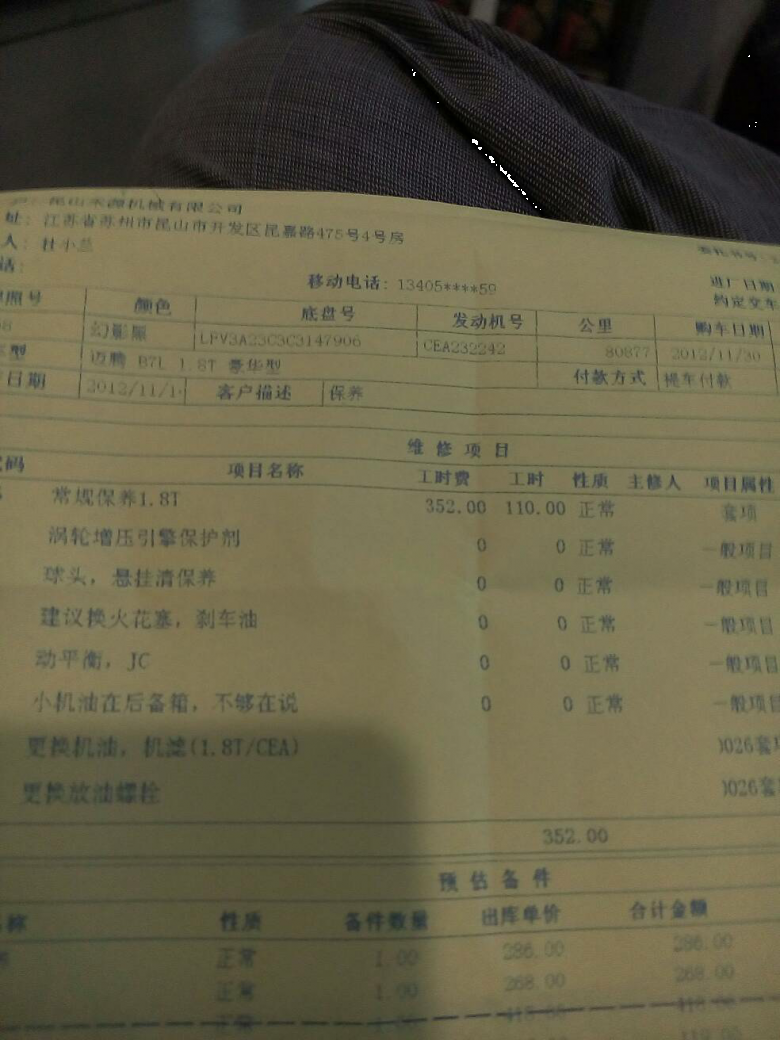 昆山禾源机械有限公司
址：江苏省苏州市昆山市开发区昆嘉路475号4号房
人：杜小兰
话：
移动电话：13405****59
进厂日期
约定交车
照号 颜色 底盘号 发动机号 公里 购车日期
幻影黑 LFV3A23C3C3147906 CEA232242 80877 2012/11/30
型 迈腾 B7L 1.8T 豪华型 付款方式 提车付款
日期 2012/11/1 客户描述 保养
维修项目
码 项目名称 工时费 工时 性质 主修人 项目属性
常规保养1.8T 352.00 110.00 正常 套项
涡轮增压引擎保护剂 0 0 正常 一般项目
球头，悬挂清保养 0 0 正常 一般项目
建议换火花塞，刹车油 0 0 正常 一般项目
动平衡，JC 0 0 正常 一般项目
小机油在后备箱，不够在说 0 0 正常 一般项目
更换机油，机滤(1.8T/CEA) 026套
更换放油螺栓 026套
352.00
预估备件
称 性质 备件数量 出库单价 合计金额
正常 1.00 286.00 286.00
正常 1.00 268.00 268.00
正常